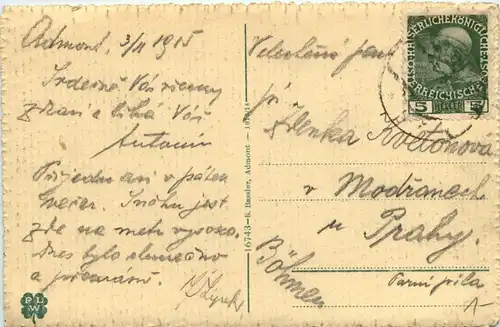 Admont, 3/II 1915
Srdečně Vás všemy
zdraví a líbá Váš
Antonín
Přijedu asi v pátek
večer. Sněhu jest
zde na metr vysoko.
Dnes bylo slunečno
a překrásně.
16743 - R. Bassler, Admont - 1910/11
PL
W
KAISERLICHE KÖNIGLICHE
ÖSTERREICHISCHE
5 HELLER 5
Velectěná paní
pí
Zdenka Květoňová
v Modřanech
u Prahy.
Böhmen
Parní pila